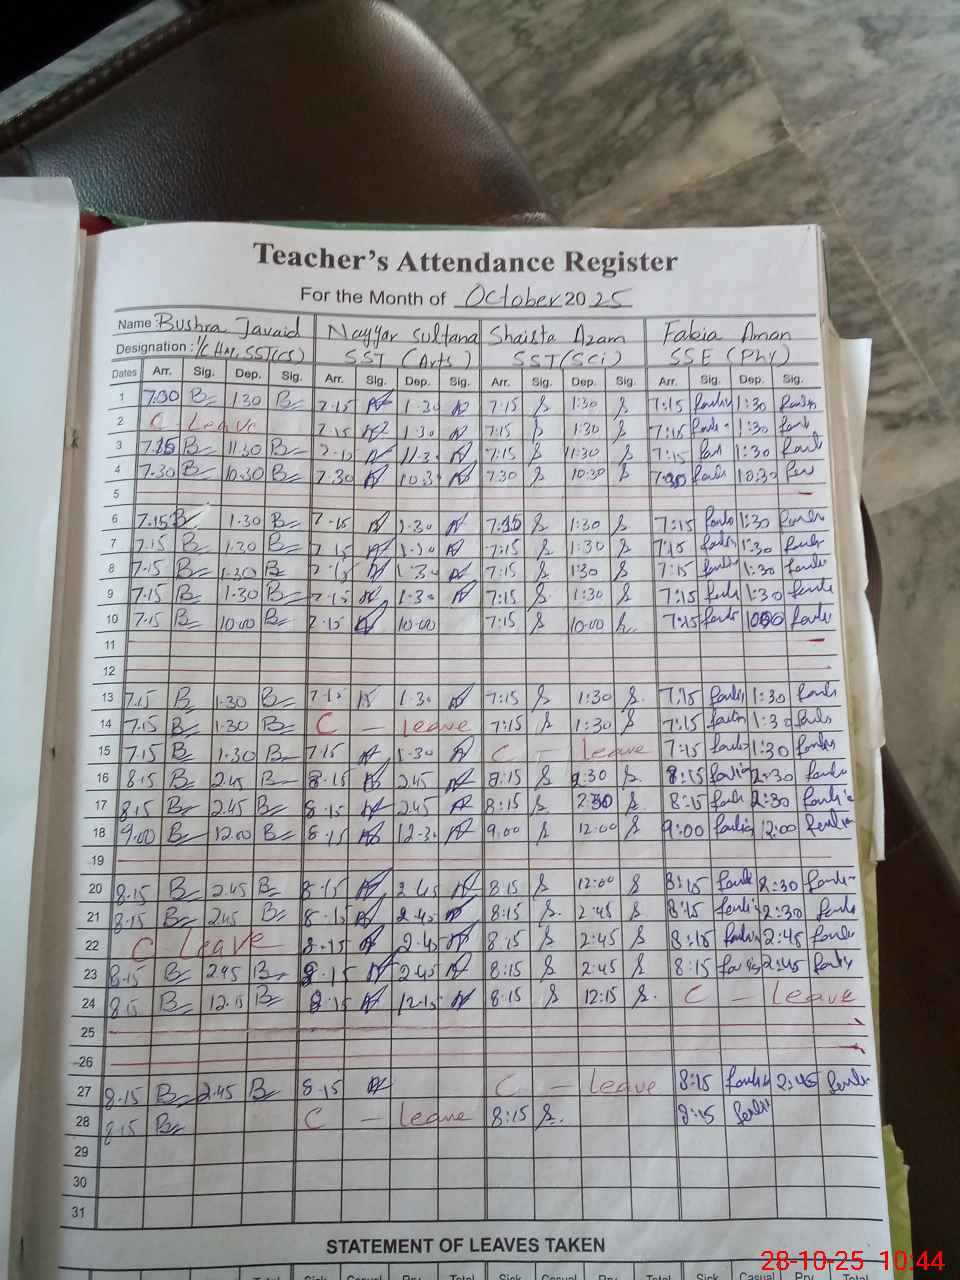 Teacher's Attendance Register
For the Month of October 2025
Name Bushra Javaid Nayyar Sultana Shaista Azam Fabia Aman
Designation: I/C HM, SST(CS) SST (Arts) SST (Sci) SSE (Phy)
Dates Arr. Sig. Dep. Sig. Arr. Sig. Dep. Sig. Arr. Sig. Dep. Sig. Arr. Sig. Dep. Sig.
1 7:30 B 1.30 B 7.15 1.30 7:15 S 1:30 S 7:15 1:30
2 C Leave 7.15 1.30 7:15 S 1:30 S 7:15 1:30
3 7.15 B 11.30 B 7.15 11.30 7:15 S 11:30 S 7:15 1:30
4 7.30 B 10.30 B 7.30 10.30 7:30 S 10:30 S 7:30 10:30
5
6 7.15 B 1.30 B 7.15 1.30 7:15 S 1:30 S 7:15 1:30
7 7.15 B 1.30 B 7.15 1.30 7:15 S 1:30 S 7:15 1:30
8 7.15 B 1.30 B 7.15 1.30 7:15 S 1:30 S 7:15 1:30
9 7.15 B 1.30 B 7.15 1.30 7:15 S 1:30 S 7:15 1:30
10 7.15 B 10.00 B 7.15 10.00 7:15 S 10:00 S 7:15
11
12
13 7.15 B 1.30 B 7.15 1.30 7:15 S 1:30 S 7:15 1:30
14 7.15 B 1.30 B C - leave 7:15 S 1:30 S 7:15 1:30
15 7.15 B 1.30 B 7.15 1.30 C - leave 7:15 1:30
16 8.15 B 2.45 B 8.15 2.45 8:15 S 2:30 S 8:15 2:30
17 8.15 B 2.45 B 8.15 2.45 8:15 S 2:30 S 8:15 2:30
18 9.00 B 12.00 B 8.15 12.30 9:00 S 12:00 S 9:00 12:00
19
20 8.15 B 2.45 B 8.15 2.45 8:15 S 12:00 S 8:15 2:30
21 8.15 B 2.45 B 8.15 2.45 8:15 S 2:45 S 8:15 2:30
22 C Leave 8.15 2.45 8:15 S 2:45 S 8:15 2:45
23 8.15 B 2.45 B 8.15 2.45 8:15 S 2:45 S 8:15 2:45
24 8.15 B 12.15 B 8.15 12.15 8:15 S 12:15 S C - leave
25
26
27 8.15 B 2.45 B 8.15 C - leave 8:15 2:45
28 8.15 B C - leave 8:15 S. 8:15
29
30
31
STATEMENT OF LEAVES TAKEN
Total Sick Casual Prv. Total Sick Casual Prv. Total Sick Casual Prv. Total
28-10-25 10:44